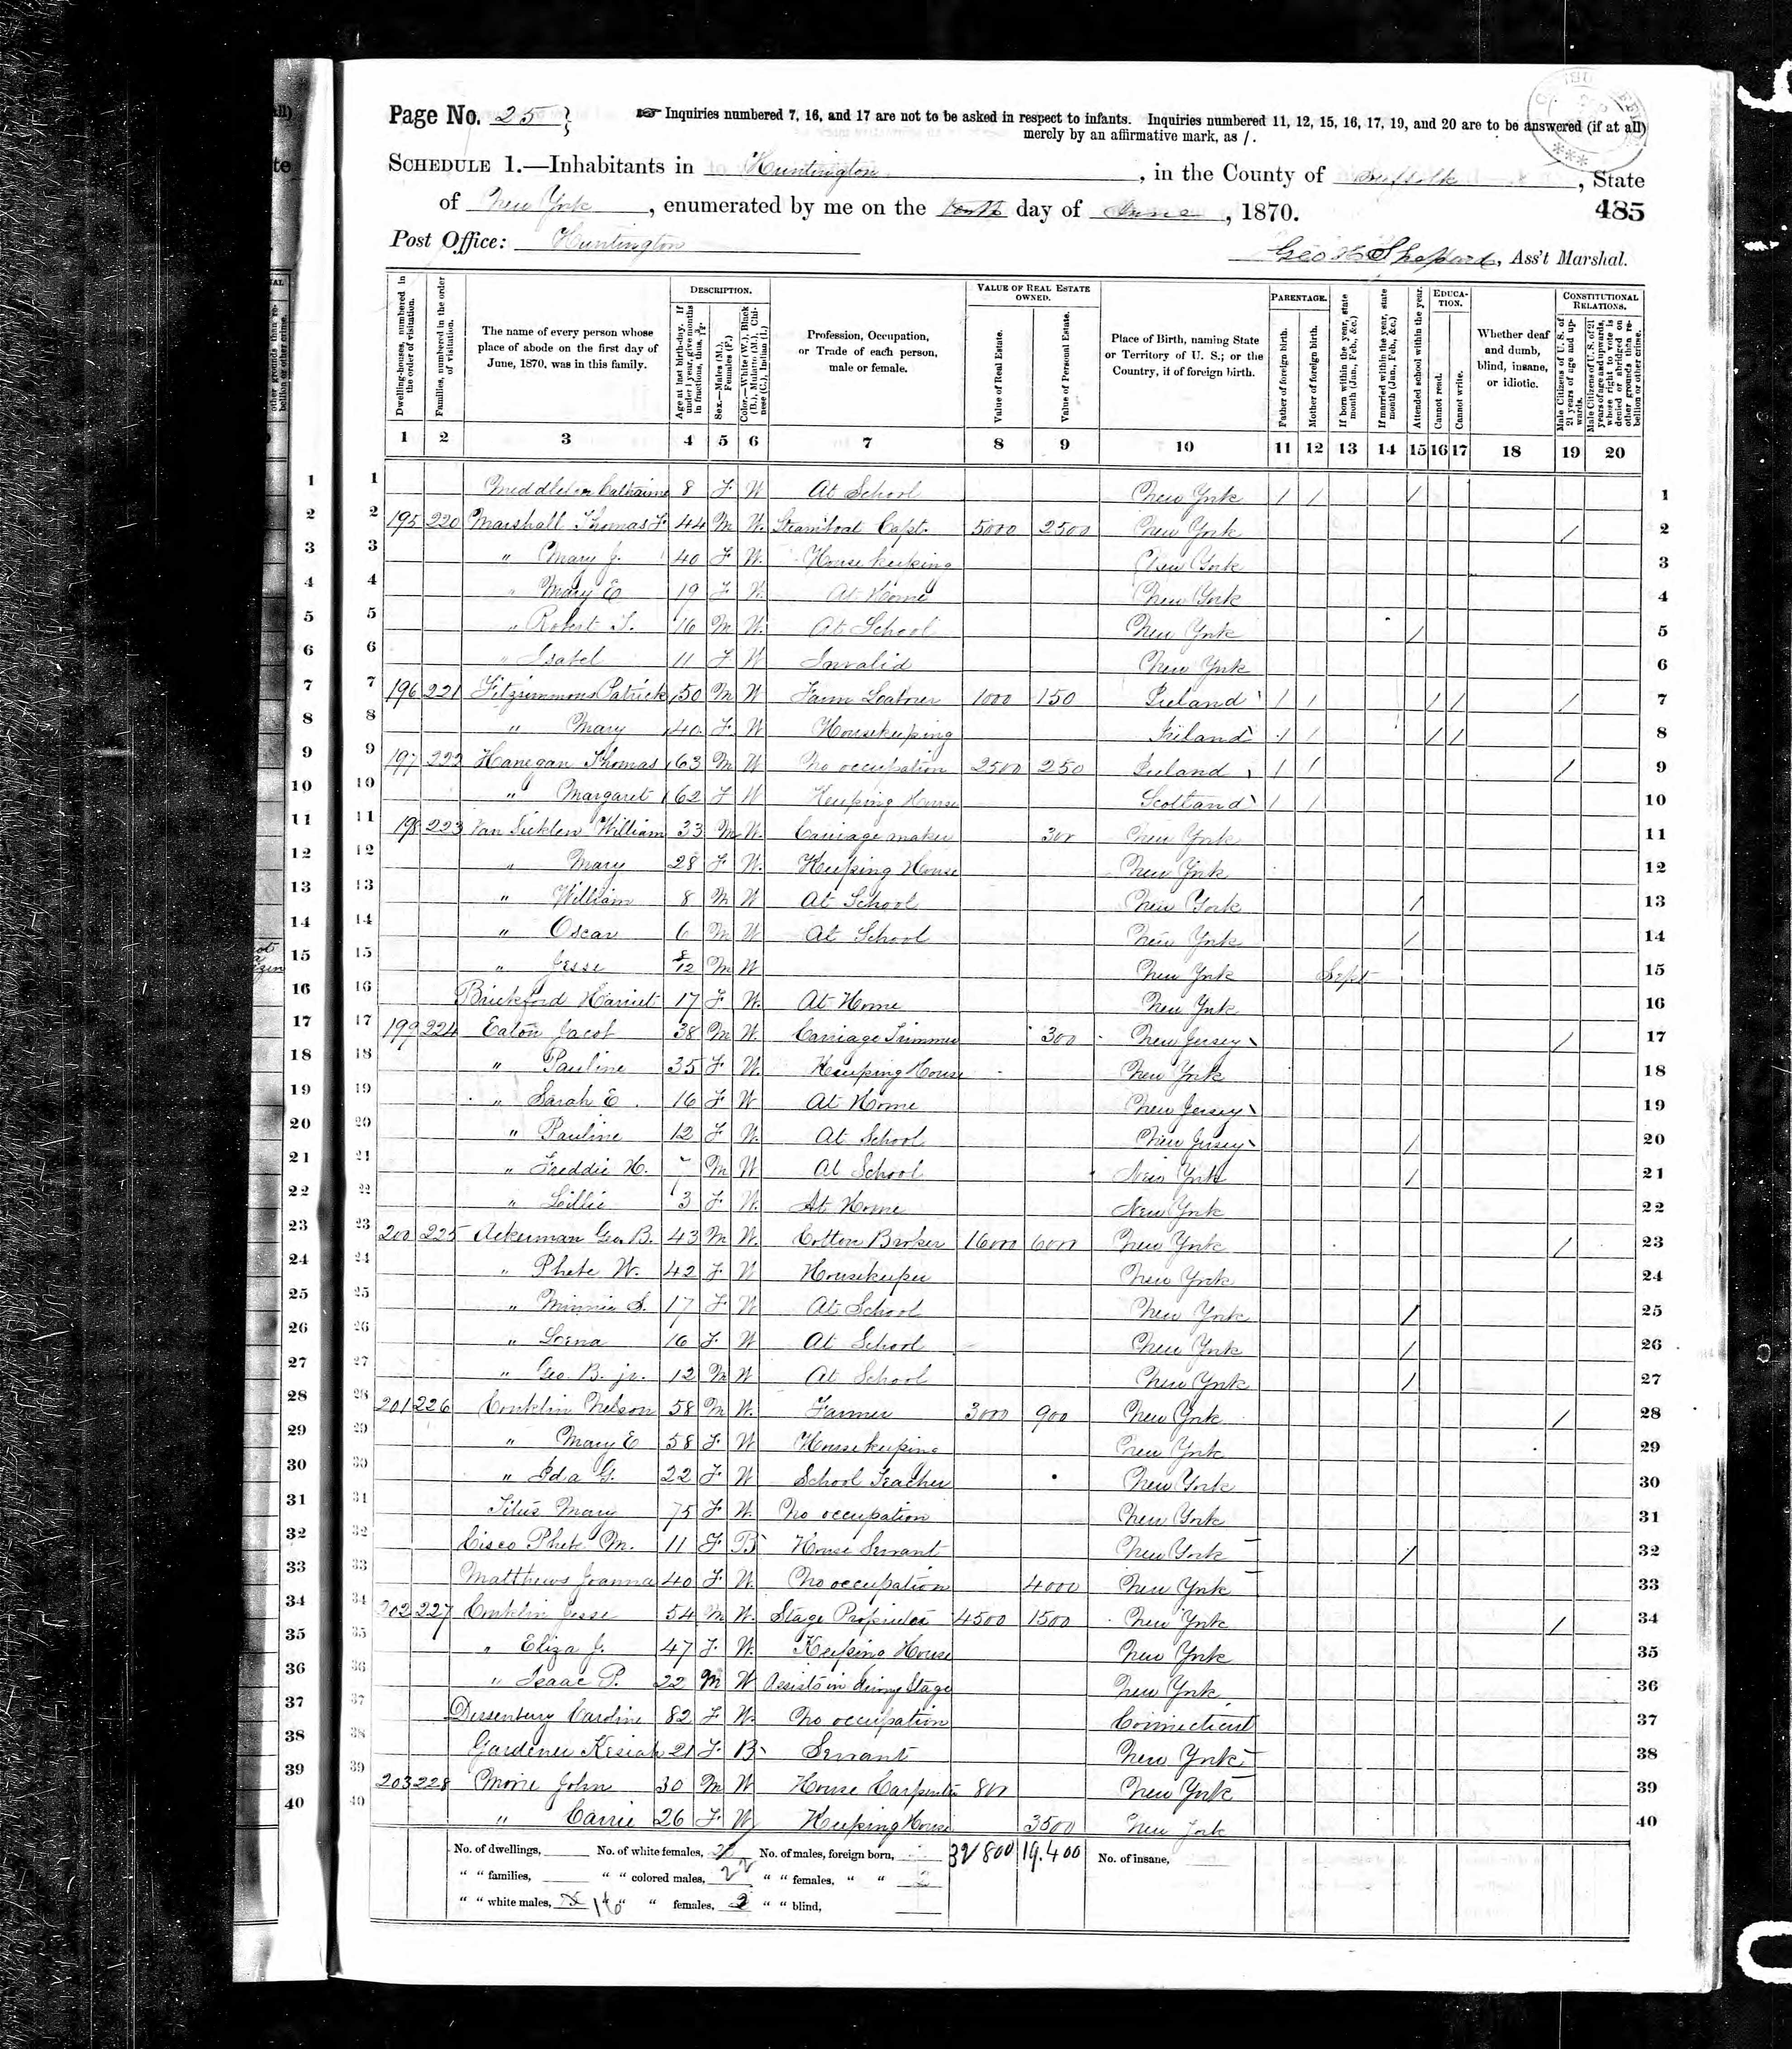 Page No. 25
Inquiries numbered 7, 16, and 17 are not to be asked in respect to infants. Inquiries numbered 11, 12, 15, 16, 17, 19, and 20 are to be answered (if at all)
merely by an affirmative mark, as /.
SCHEDULE 1.—Inhabitants in Huntington, in the County of Suffolk, State
of New York, enumerated by me on the tenth day of June, 1870.
485
Post Office: Huntington
Geo Shepard, Ass't Marshal.
DESCRIPTION. VALUE OF REAL ESTATE OWNED. PARENTAGE. EDUCATION. CONSTITUTIONAL RELATIONS.
Dwelling-houses, numbered in the order of visitation.
Families, numbered in the order of visitation.
The name of every person whose place of abode on the first day of June, 1870, was in this family.
Age at last birth-day. If under 1 year, give months in fractions, thus,
Sex.—Males (M.), Females (F.)
Color.—White (W.), Black (B.), Mulatto (M.), Chinese (C.), Indian (I.)
Profession, Occupation, or Trade of each person, male or female.
Value of Real Estate.
Value of Personal Estate.
Place of Birth, naming State or Territory of U. S.; or the Country, if of foreign birth.
Father of foreign birth.
Mother of foreign birth.
If born within the year, state month (Jan., Feb., &c.)
If married within the year, state month (Jan., Feb., &c.)
Attended school within the year.
Cannot read.
Cannot write.
Whether deaf and dumb, blind, insane, or idiotic.
Male Citizens of U. S. of 21 years of age and upwards.
Male Citizens of U. S. of 21 years of age and upwards, whose right to vote is denied or abridged on other grounds than rebellion or other crime.
1 2 3 4 5 6 7 8 9 10 11 12 13 14 15 16 17 18 19 20
1 Middleton Catharine 8 F W At School New York / / / 1
2 195 220 Marshall Thomas F 44 M W. Steamboat Capt. 5000 2500 New York / 2
3 " Mary J. 40 F W. Housekeeping New York 3
4 " Mary E 19 F W. At Home New York 4
5 " Robert S. 16 M W. At School New York / 5
6 " Isabel 11 F W Invalid New York 6
7 196 221 Fitzsimmons Patrick 50 M W Farm Laborer 1000 150 Ireland / / / / / 7
8 " Mary 40 F. W Housekeeping Ireland / / / / 8
9 197 222 Hanegan Thomas 63 M W No occupation 2500 250 Ireland / / / 9
10 " Margaret 62 F W Keeping House Scotland / / 10
11 198 223 Van Sicklen William 33 M W. Carriage maker 300 New York 11
12 " Mary 28 F W. Keeping House New York 12
13 " William 8 M W At School New York / 13
14 " Oscar 6 M W At School New York / 14
15 " Jesse 8/12 M W New York Sept 15
16 Brickford Harriet 17 F W. At Home New York 16
17 199 224 Eaton Jacob 38 M W. Carriage Trimmer 300 New Jersey / 17
18 " Pauline 35 F W. Keeping House New York 18
19 " Sarah E 16 F W At Home New Jersey 19
20 " Pauline 12 F W. At School New Jersey / 20
21 " Freddie H. 7 M W At School New York / 21
22 " Lillie 3 F W. At Home New York 22
23 200 225 Ackerman Geo. B. 43 M W. Cotton Broker 16000 6000 New York / 23
24 " Phebe W. 42 F W Housekeeper New York 24
25 " Minnie S. 17 F W At School New York / 25
26 " Lorna 16 F W At School New York / 26
27 " Geo. B. jr. 12 M W At School New York / 27
28 201 226 Conklin Nelson 58 M W. Farmer 3000 900 New York / 28
29 " Mary E 58 F W Housekeeping New York 29
30 " Ida G. 22 F W School Teacher New York 30
31 Titus Mary 75 F W. No occupation New York 31
32 Cisco Phebe M. 11 F B House Servant New York / 32
33 Matthews Joanna 40 F W. No occupation 4000 New York 33
34 202 227 Conklin Jesse 54 M W. Stage Proprietor 4500 1500 New York / 34
35 " Eliza J. 47 F W. Keeping House New York 35
36 " Isaac P. 22 M W Assists in driving Stage New York 36
37 Dusenbury Caroline 82 F W. No occupation Connecticut 37
38 Gardener Kesiah 21 F B Servant New York 38
39 203 228 John 30 M W House Carpenter 800 New York 39
40 " Carrie 26 F W Keeping House 3500 New York 40
No. of dwellings, No. of white females, No. of males, foreign born, 32800 19.400 No. of insane,
" " families, " " colored males, 22 " " females, " " 2
" " white males, 16 " " females, 2 " " blind,